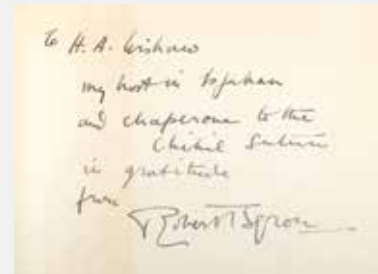 To H. A. Wishaw
my host in Isfahan
and chaperone to the
Chihil Sutun
in gratitude
from
Robert Byron